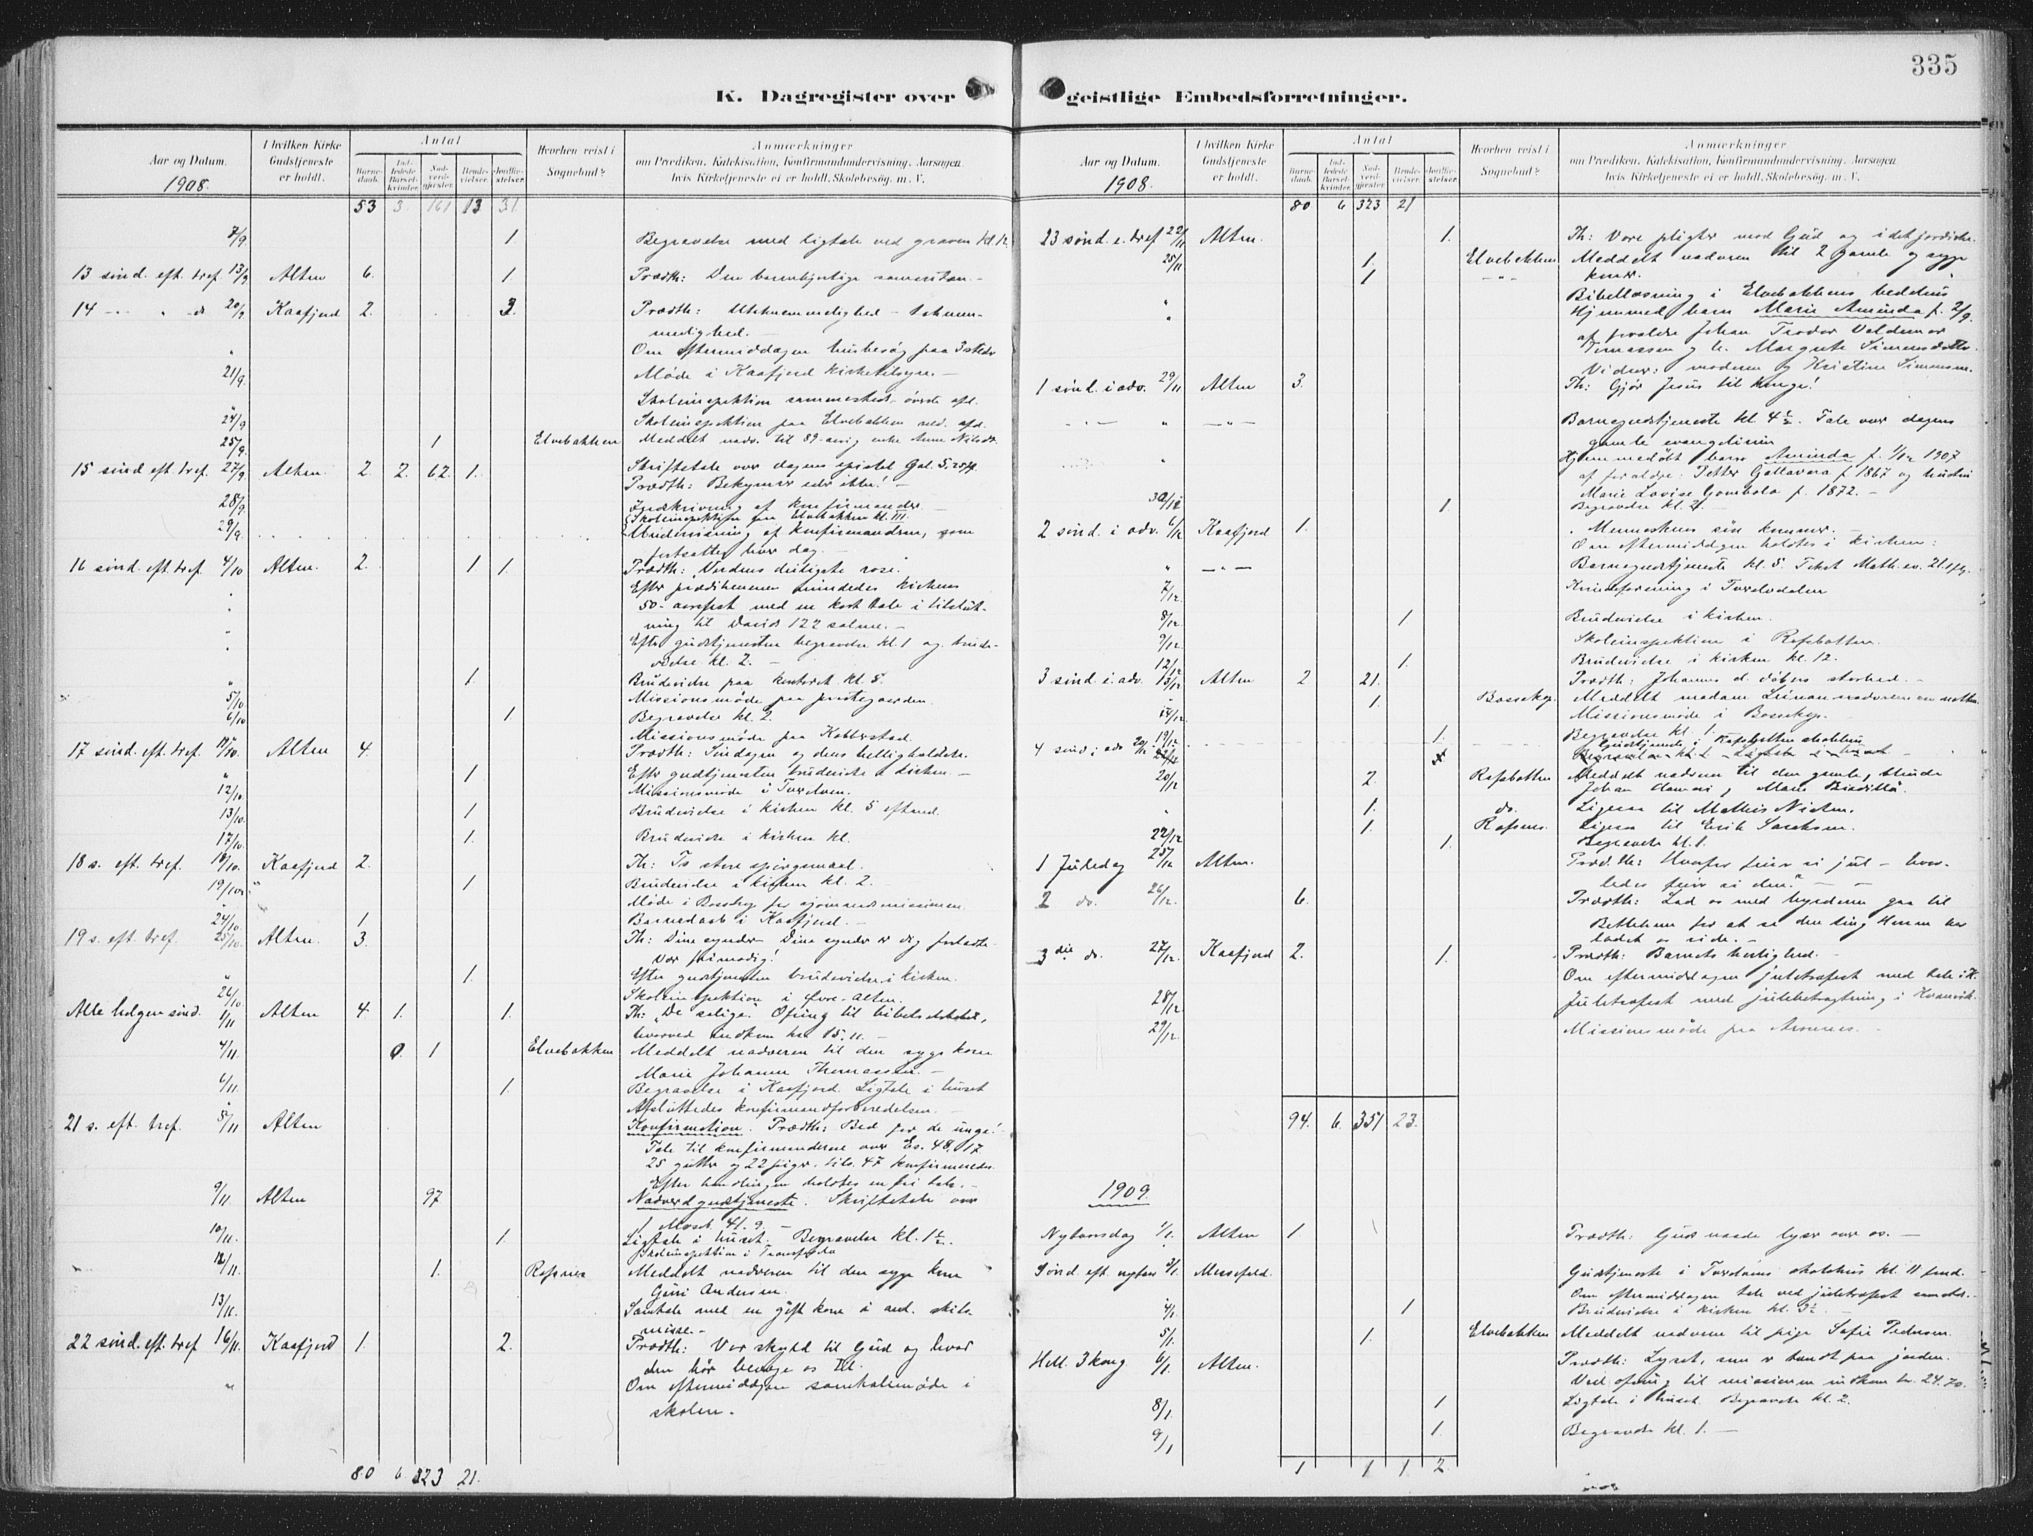 335
K. Dagregister over
Aar og Datum.
1908.
I hvilken Kirke Gudstjeneste er holdt.
Antal
Barnedaab.
Indledede Barselkvinder.
Nadverdgjester.
Brudevielser.
Jordfæstelser.
Hvorhen reist i Sognebud?
Anmærkninger
om Prædiken, Katekisation, Konfirmandundervisning, Aarsagen
hvis Kirketjeneste ei er holdt, Skolebesøg, m. V.
53 3. 161 13 31.
7/9 1 Begravelse med ligtale ved graven kl. 12.
13 sønd. eft. tref. 13/9 Alten 6. 1 Prædth: Den barmhjertige samaritan. -
14 - " - do 20/9 Kaafjord 2. 3. Prædth: Utaknemmelighed - taknem-
melighed. -
" Om eftermiddagen husbesøg paa 3 steder
21/9. Møde i Kaafjord kirketilsyn. -
" Skoleinspektion sammesteds øverste afd.
24/9 Skoleinspektion paa Elvebakken ned. afd.
25/9. 1 Elvebakken Meddelt nadv. til 89-aarig enke Anne Nilsdr.
15 sønd. eft. tref. 27/9 Alten. 2. 2. 62. 1. Skriftetale over dagens epistel Gal. 5. 25 ff.
Prædth: Bekymrer eder ikke! -
28/9. Indskrivning af konfirmander. -
Skoleinspektion paa Elvebakken kl. III.
29/9. Undervisning af konfirmanderne, som
fortsatte hver dag. -
16 sønd. eft. tref. 4/10 Alten. 2. 1 1. Prædth: Verdens deiligste rose.
" Efter prædikenen mindedes kirkens
50-aarsfest med en kort tale i tilslut-
ning til Davids 122 salme. -
" Efter gudstjenesten begravelse kl. 1 og brude-
vielse kl. 2. -
" 1. Brudevielse paa kontoret kl. 5.
5/10 Missionsmøde paa prestegaarden.
6/10 1 Begravelse kl. 2.
" Missionsmøde paa
17 sønd. eft. tref. 11/10. Alten 4. Prædth: Søndagen og dens helligholdelse.
" 1 Efter gudstjenesten brudevielse i kirken. -
12/10. Missionsmøde i Tverelven.
13/10. 1 Brudevielse i kirken kl. 5 efterm.
17/10. 1. Brudevielse i kirken kl.
18 s. eft. tref. 18/10. Kaafjord 2. Th: To store spørgsmaal.
19/10. 1 Brudevielse i kirken kl. 2. -
" Møde i Bossekop for sjømandsmissionen.
24/10. 1 Barnedaab i Kaafjord. -
19 s. eft. tref. 25/10. Alten. 3. Th: Dine synder - Dine synder er dig forladte.
Vær frimodig!
" 1. Efter gudstjenesten brudevielse i kirken.
26/10 Skoleinspektion i Øvre-Alten.
Alle helgen sønd. 1/11 Alten 4. 1. 1. Th: "De salige." Ofring til bibelselskabet,
hvorved indkom kr. 15.11. -
4/11. 0 1 Elvebakken Meddelt nadveren til den syge kone
Marie Johanne Thomassen. -
6/11. 1 Begravelse i Kaafjord. Ligtale i huset
" Afsluttedes konfirmandforberedelsen. -
21 s. eft. tref. 8/11 Alten Konfirmation. Prædth: Bed for de unge!
Tale til konfirmanderne over Es. 48, 17
25 gutter og 22 piger. tils. 47 konfirmeredes
Efter handlingen holdtes en fri tale. -
9/11 Alten 97 Nadverdgudstjeneste. Skriftetale over
1 Moseb. 41. 9. -
10/11. 1. Ligtale i huset. Begravelse kl. 1 1/2.
Skoleinspektion i
12/11. 1. Rafsnes Meddelt nadveren til den syge kone
Guri Andersen.
13/11. Samtale med en gift kone i anl. skils-
misse. -
22 sønd. eft. tref 16/11. Kaafjord 1. 2. Prædth: Vor skyld til Gud og hvad
den bør bevæge os til.
" Om eftermiddagen samtalemøde i
skolen. -
80 6. 323 21.
geistlige Embedsforretninger.
Aar og Datum.
1908.
I hvilken Kirke Gudstjeneste er holdt.
Antal
Barnedaab.
Indledede Barselkvinder.
Nadverdgjester.
Brudevielser.
Jordfæstelser.
Hvorhen reist i Sognebud?
Anmærkninger
om Prædiken, Katekisation, Konfirmandundervisning, Aarsagen
hvis Kirketjeneste ei er holdt, Skolebesøg, m. V.
80 6 323 21
23 sønd. e. tref 22/11 Alten. 1. Th: Vore pligter mod Gud og i det jordiske.
25/11 1. Elvebakken Meddelt nadveren til 2 gamle og syge
1 - " - koner.
" Bibellæsning i Elvebakkens bedehus
" Hjemmed. barn Marie Aminda f. 2/9.
af forældre Johan Teodor Valdemar
Tomassen og h. Margrete Simonsdatter.
Vidner: moderen og Kristine Simonsen.
1 sønd. i adv. 29/11 Alten 3. Th: Gjør Jesus til konge!
- " - " - " - Barnegudstjeneste kl 4 1/2. Tale over dagens
gamle evangelium
" Hjemmedøbt barn Aminda f. 1/12 1907
af forældre: Petter Gallavara f. 1867 og hustru
Marie Lovise Gombola f. 1872. -
1 Begravelse kl. 2. -
2 sønd. i adv. 6/12 Kaafjord 1. Menneskens søn kommer. -
Om eftermiddagen holdtes i kirken:
" - " - Barnegudstjeneste kl. 5. Tekst Math. ev. 21. 1 flg.
7/12. Kvindeforening i Tverelvdalen
8/12 1 Brudevielse i kirken.
9/12. Skoleinspektion i Rafsbotten.
12/12 1. Brudevielse i kirken kl. 12.
3 sønd. i adv. 13/12 Alten 2 21. Prædth: Johannes d. døbers storhed. -
" 1. Bossekop. Meddelt madam nadveren
14/12. Missionsmøde i Bossekop. -
19/12 1. Begravelse kl. 1.
4 sønd. i adv. 20/12 Gudstjeneste i Rafsbotten skolehus
20/12 2. Rafsbotten Meddelt nadveren til den gamle, blinde
Johan
" 1. do. Ligesaa til Mathis Nielsen.
1. Rafsnes. Ligesaa til Erik Isaksen.
22/12 1. Begravelse kl. 1.
1 Juledag 25/12 Alten. Prædth: Hvorfor feirer vi jul - hvor-
ledes feirer vi den? - -
2 do. 26/12. 6. Prædth: Lad os med hyrderne gaa til
Betlehem for at se den ting Herren har
ladet os vide. -
3die do. 27/12 Kaafjord 2. 1. Prædth: Barnets herlighed. -
Om eftermiddagen juletræfest med tale i K.
28/12 Juletræfest med julebetragtning i Kvænvik.
29/12. Missionsmøde paa Aronnes. -
94. 6. 351 23.
1909.
Nytaarsdag 1/1. Alten 1. Prædth: Guds naade lyser over os. -
Sønd. eft. nytaar 3/1. Messefald. Gudstjeneste i Tverelvens skolehus kl. 11 form.
Om eftermiddagen tale ved juletræfest samsteds. -
4/1. 1 Brudevielse i kirken kl. 3 1/2. -
5/1. 1. Elvebakken Meddelt nadveren til pige Sofie Pedersen.
Hell. 3 kong. 6/1. Alten. Prædth: Lyset, som er tændt paa jorden.
Ved ofring til missionen indkom kr. 24.70.
8/1 1 Ligtale i huset. Begravelse kl. 2.
9/1 1. Begravelse kl. 1. -
1 1 1. 2.